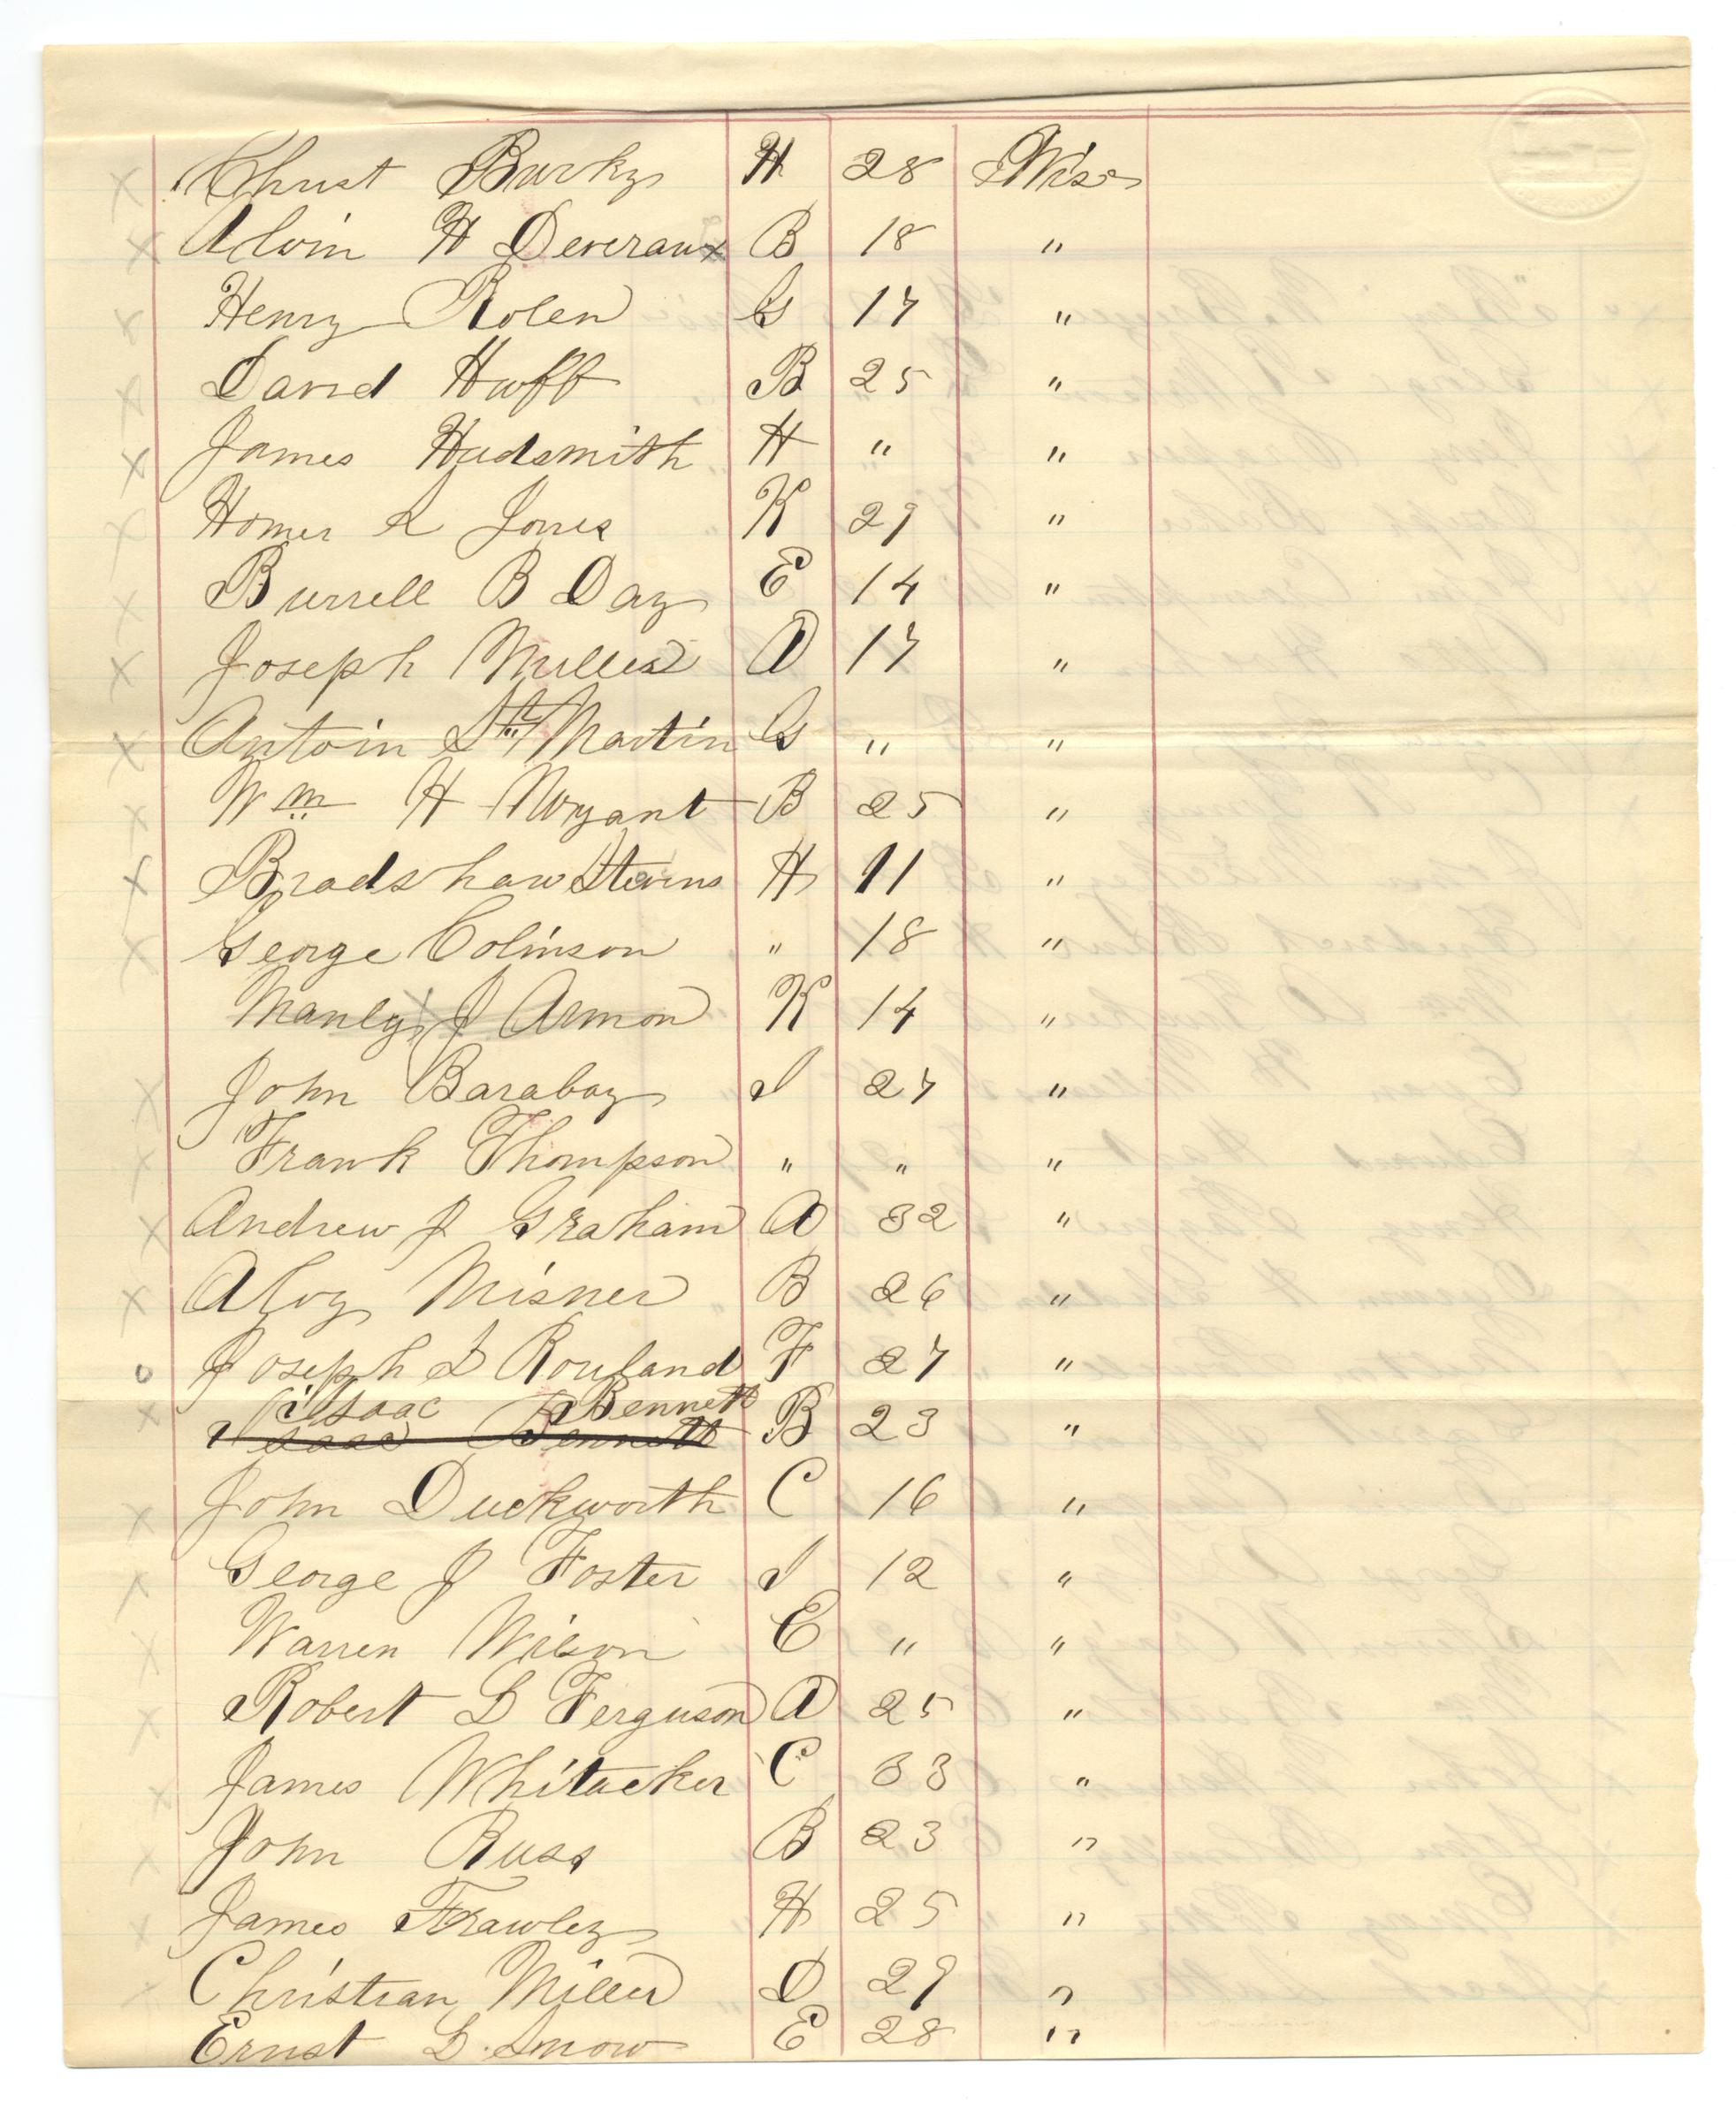 x Christ Burky H 28 Wis
x Alvin H Deveraux B 18 "
x Henry Rolen G 17 "
x David Huff B 25 "
x James Hudsmith H " "
x Homer R Jones K 29 "
x Burrell B Day E 14 "
x Joseph Miller D 17 "
x Antoin St Martin G " "
x Wm H Moyant B 25 "
x Bradshaw Stevens H 11 "
x George Colinson " 18 "
Manly J Armon K 14 "
x John Barabay I 27 "
x Frank Thompson " " "
x Andrew J Graham D 32 "
x Aloy Misner B 26 "
o Joseph L Rouland F 27 "
x Isaac Bennett
Isaac Bennett B 23 "
x John Duckworth C 16 "
x George J Foster I 12 "
x Warren Wilson E " "
x Robert L Ferguson D 25 "
x James Whitacker C 33 "
x John Russ B 23 "
x James Frawley H 25 "
x Christian Miller D 29 "
Ernst L. Snow E 28 "